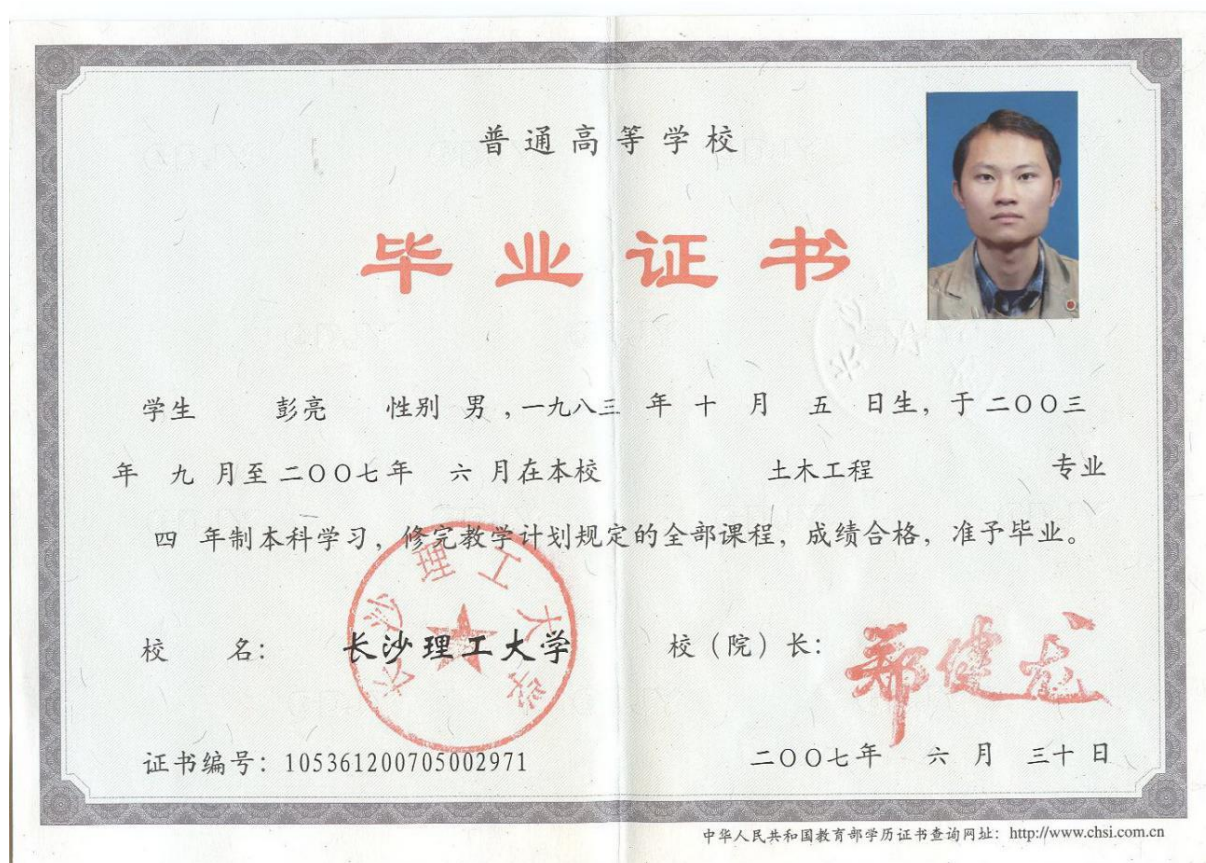 普通高等学校
毕业证书
学生 彭亮 性别 男 ,一九八三 年 十 月 五 日生, 于 二〇〇三
年 九 月至 二〇〇七年 六 月在本校 土木工程 专业
四 年制本科学习, 修完教学计划规定的全部课程, 成绩合格, 准予毕业。
校 名: 长沙理工大学 校（院）长: 郑健龙
长沙理工大学
证书编号: 105361200705002971 二〇〇七年 六 月 三十 日
中华人民共和国教育部学历证书查询网址: http://www.chsi.com.cn